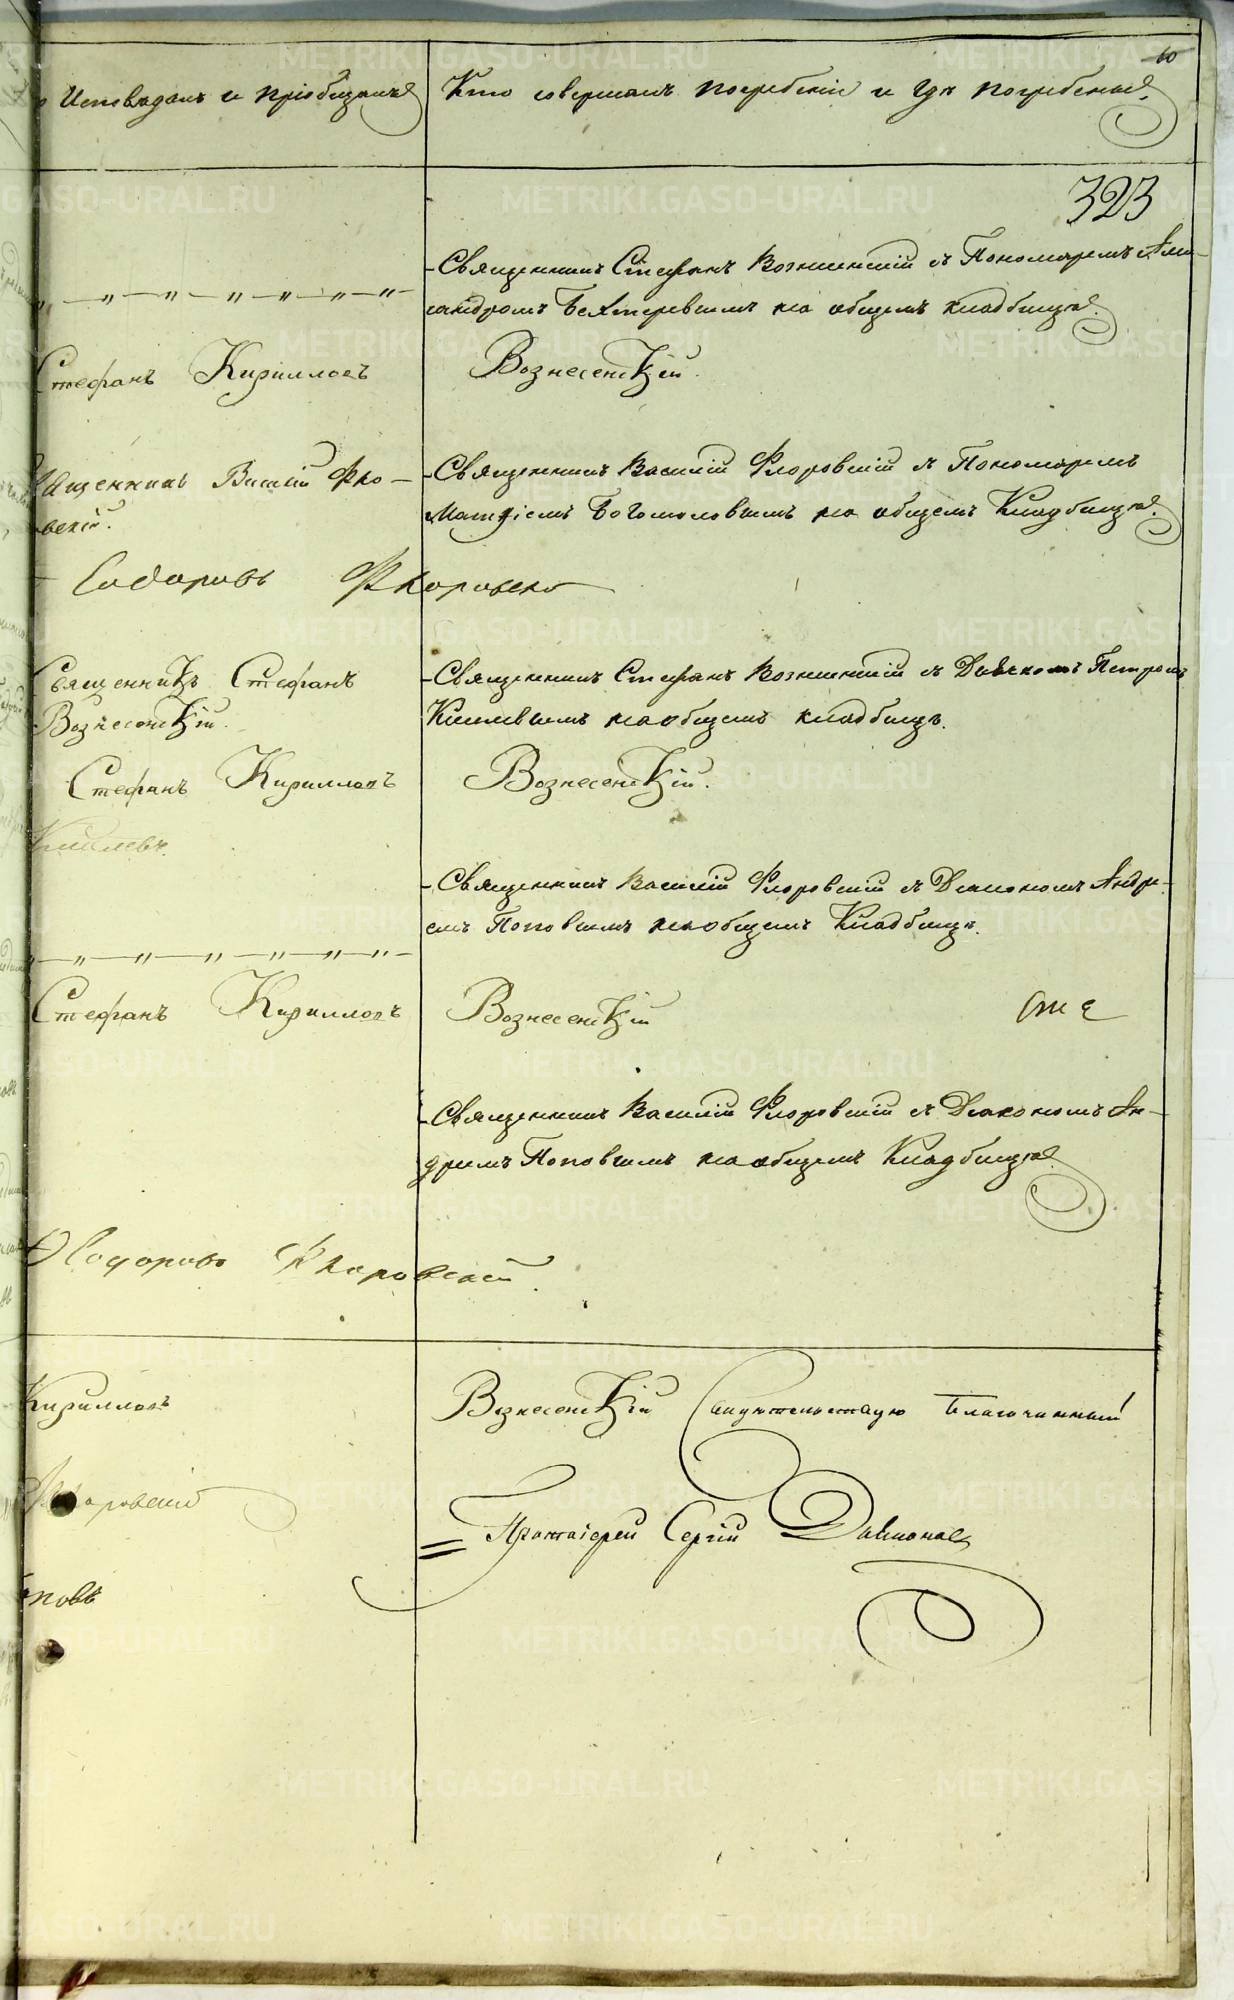 60
Исповедалъ и Пріобщалъ
Кто совершалъ погребеніе и где погребены.
323
Священникъ Стефанъ Вознесенскій съ Пономаремъ Але-
ксандромъ Бехтеревымъ на общемъ кладбище.
Стефанъ Кирилловъ Вознесенскій.
Священникъ Василій Фло-
ровскій.
Священникъ Василій Флоровскій съ Пономаремъ
Матѳіемъ Богомоловымъ на общемъ Кладбище.
Флоровско
Священникъ Стефанъ
Вознесенскій.
Священникъ Стефанъ Вознесенскій съ Дьякомъ Петромъ
на общемъ кладбищѣ.
Стефанъ Кирилловъ Вознесенскій.
Священникъ Василій Флоровскій съ Діакономъ Андре-
емъ Поповымъ на общемъ Кладбищѣ.
Стефанъ Кирилловъ Вознесенскій
Священникъ Василій Флоровскій съ Діакономъ Ан-
дреемъ Поповымъ на общемъ Кладбище.
Флоровскій.
Кирилловъ Вознесенскій Свидѣтельствую Благочинный
Флоровскій
Протоіерей Сергій
повъ
METRIKI.GASO-URAL.RU